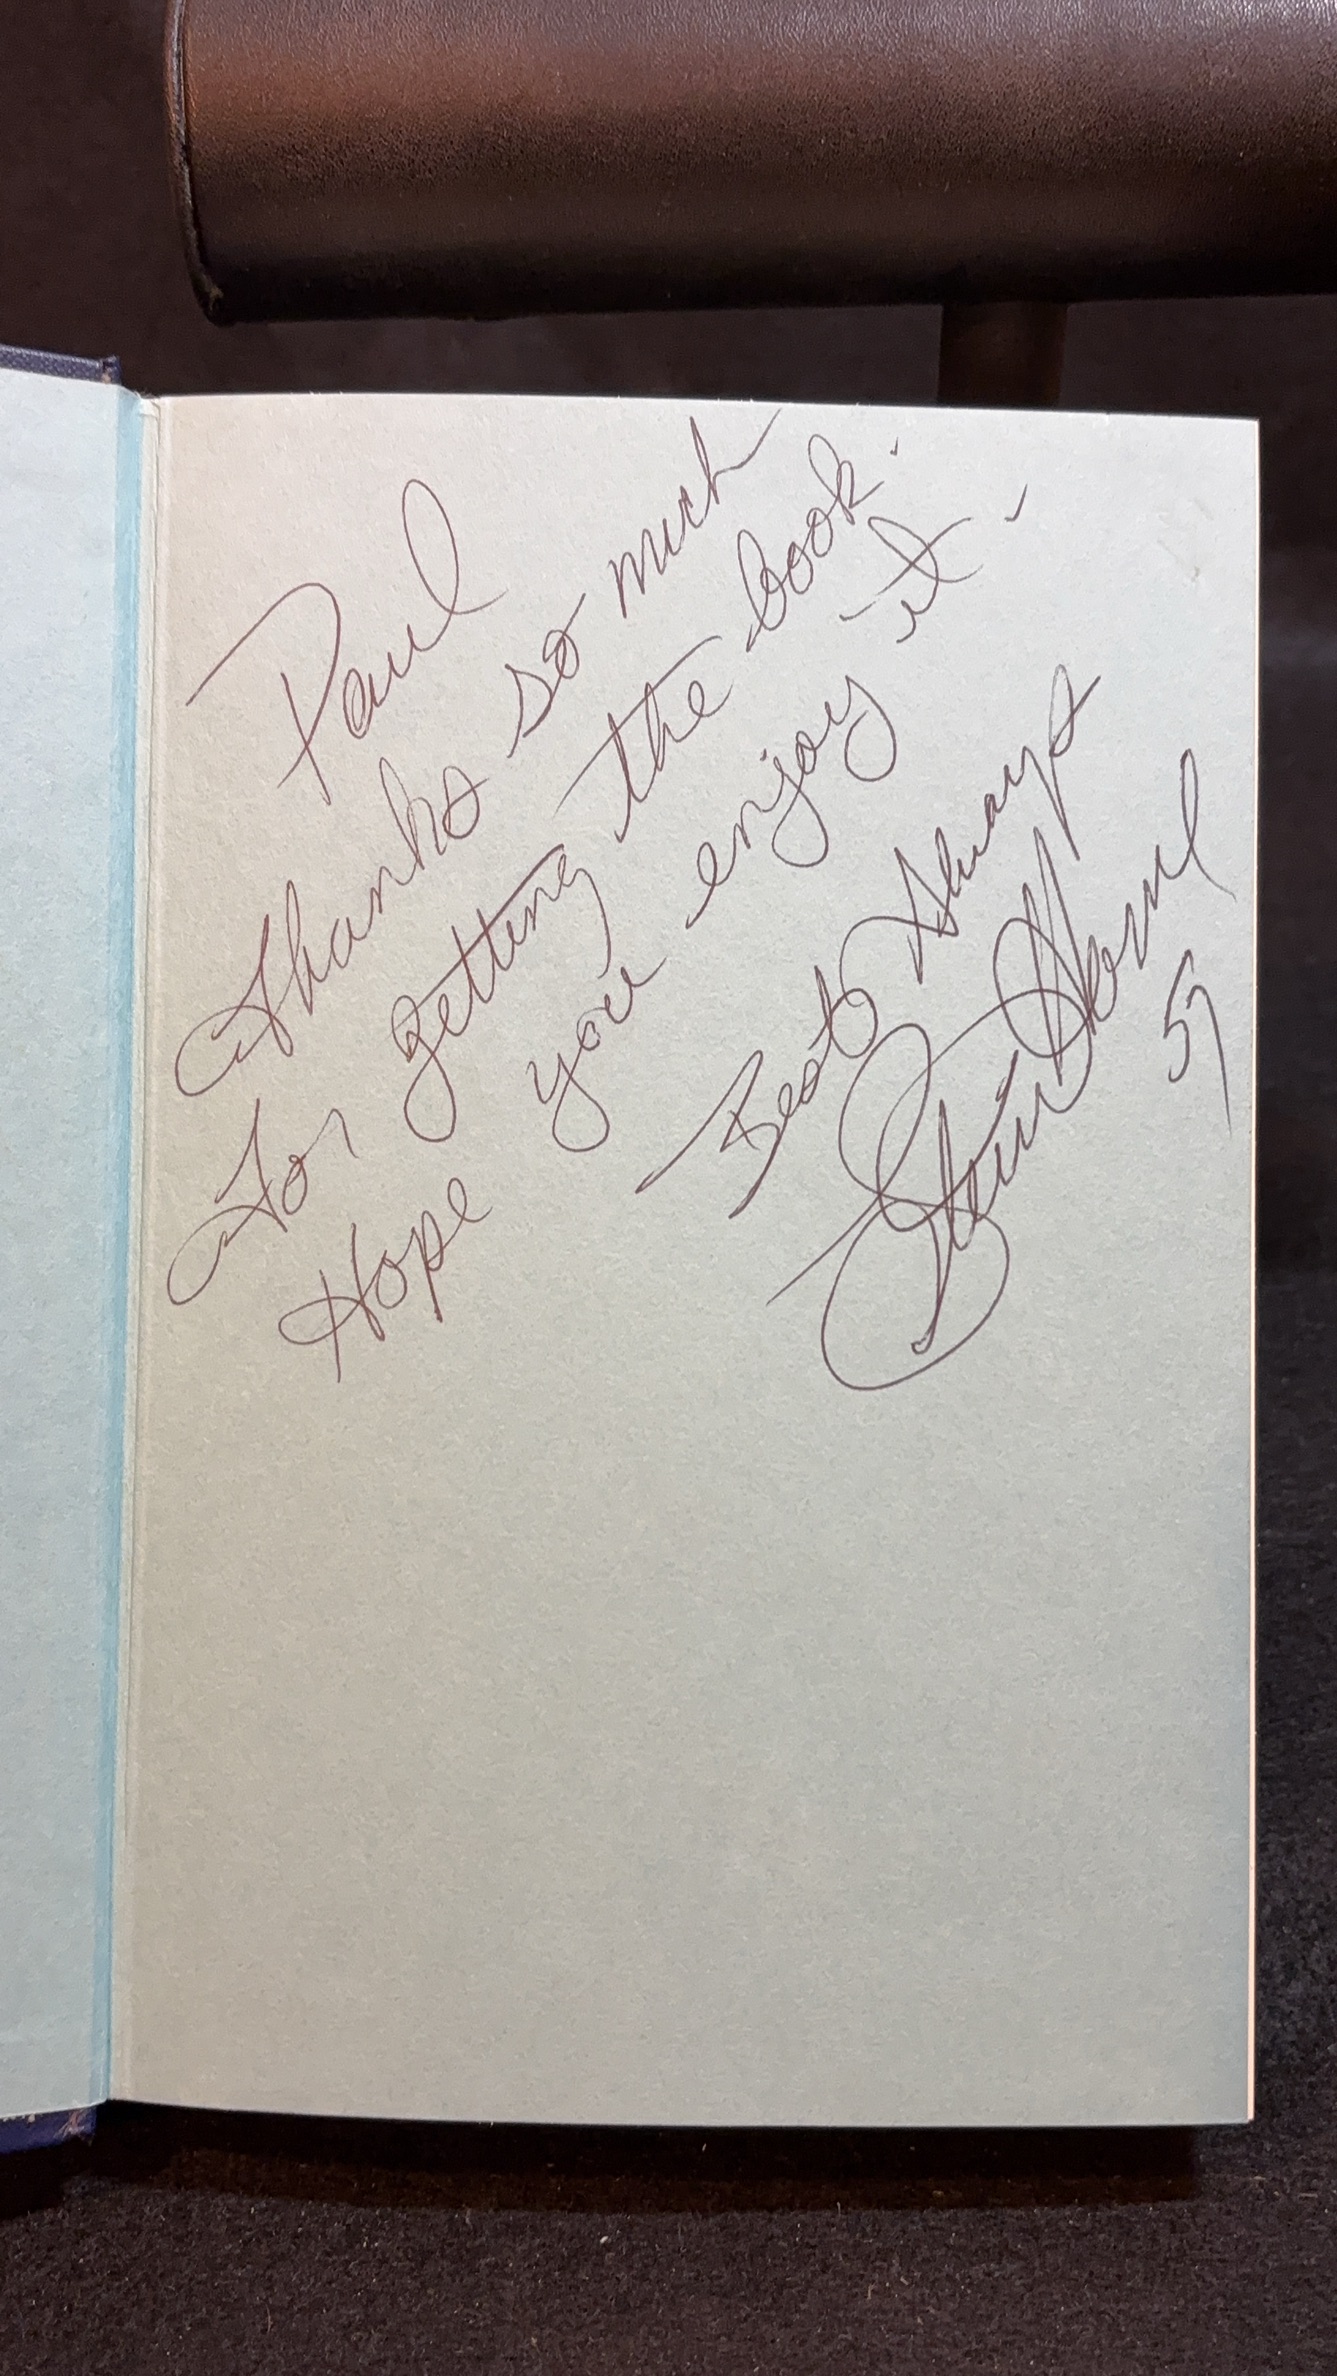 Paul
Thanks so much
For getting the book.
Hope you enjoy it.
Best Always
57